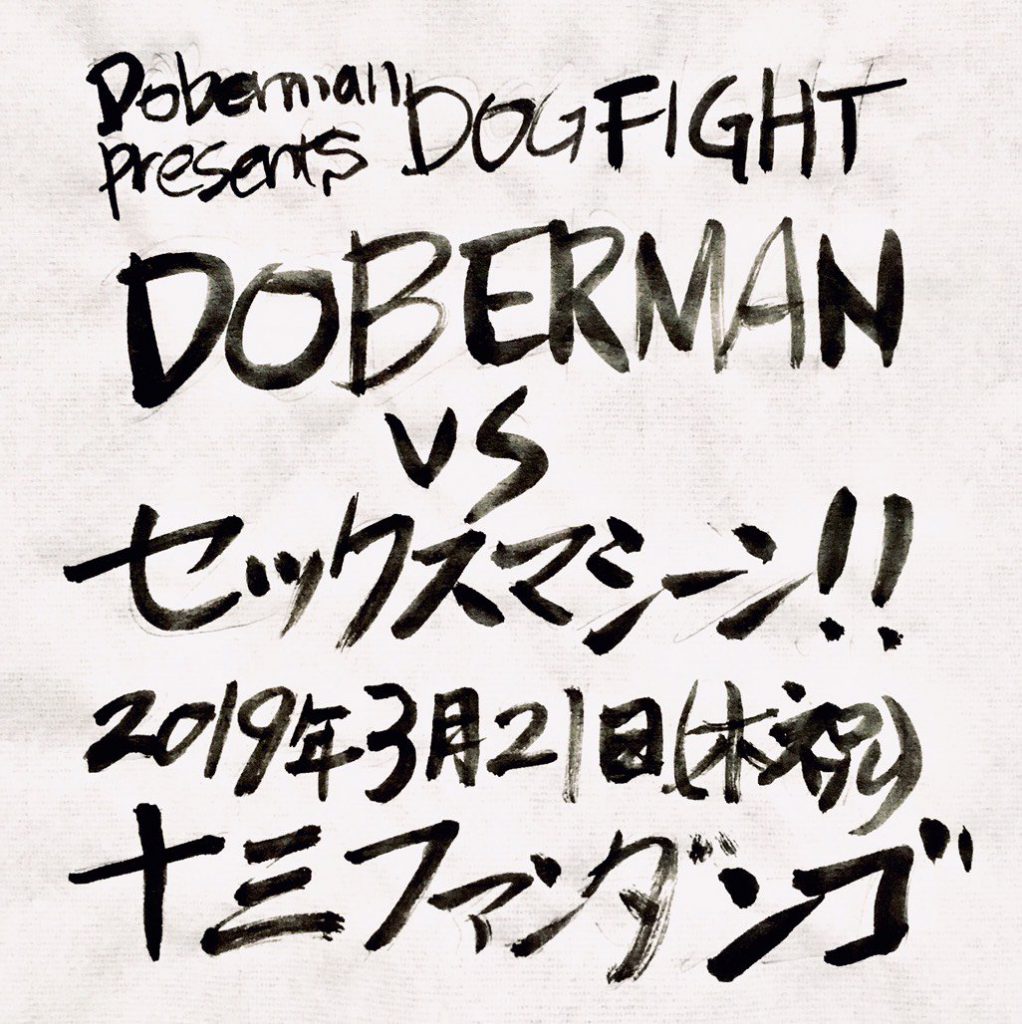 Doberman presents DOGFIGHT
DOBERMAN
VS
セックスマシーン!!
2019年3月21日(木祝)
十三ファンダンゴ